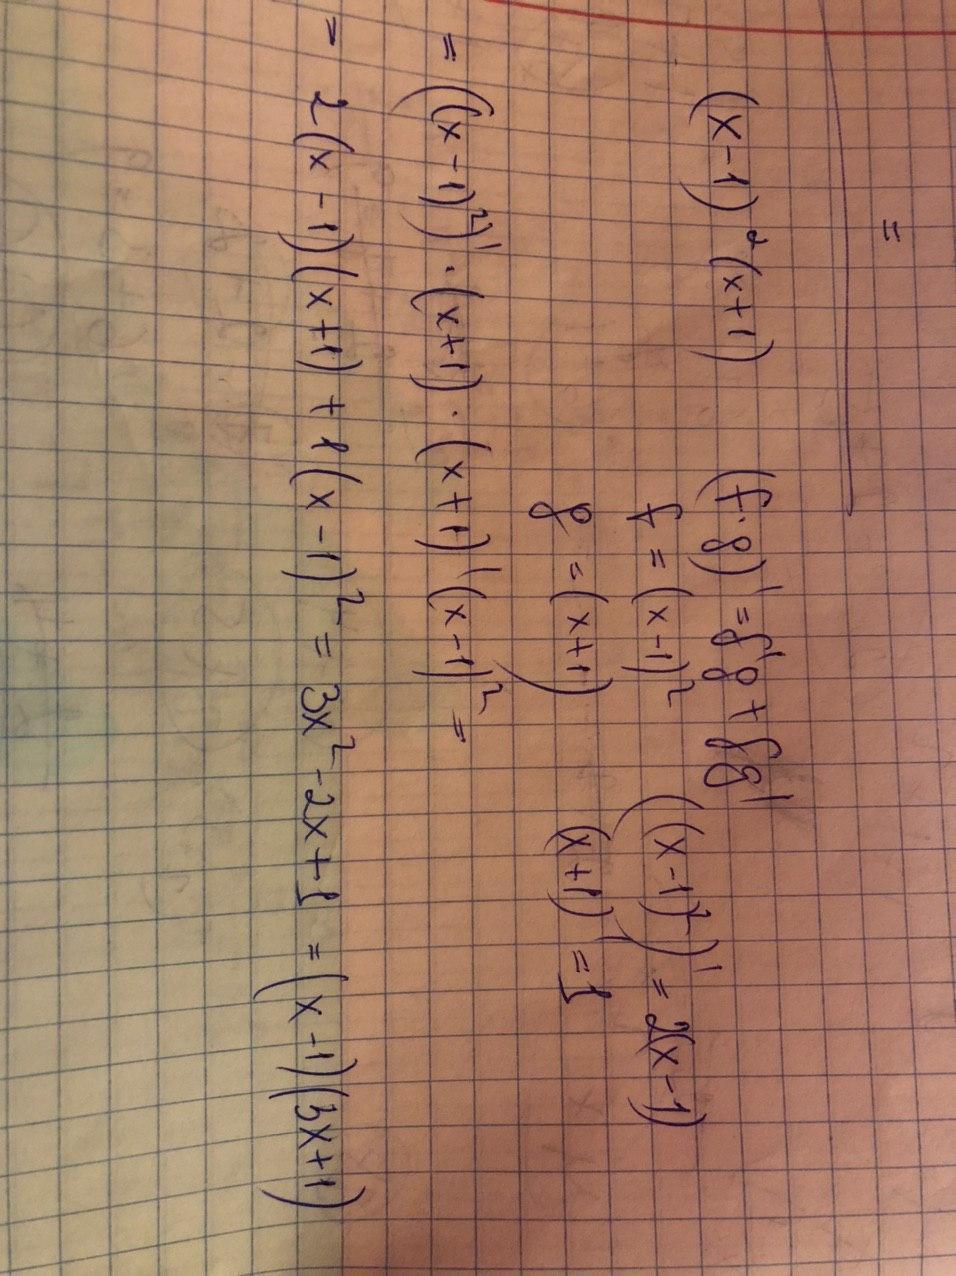 =
(x-1)² (x+1)
(f·g)' = f'g + fg'
f = (x-1)²
((x-1)²)' = 2(x-1)
g = (x+1)
(x+1)' = 1
= ((x-1)²)' · (x+1) · (x+1)' (x-1)² =
= 2(x-1)(x+1) + 1(x-1)² = 3x² - 2x + 1 = (x-1)(3x+1)